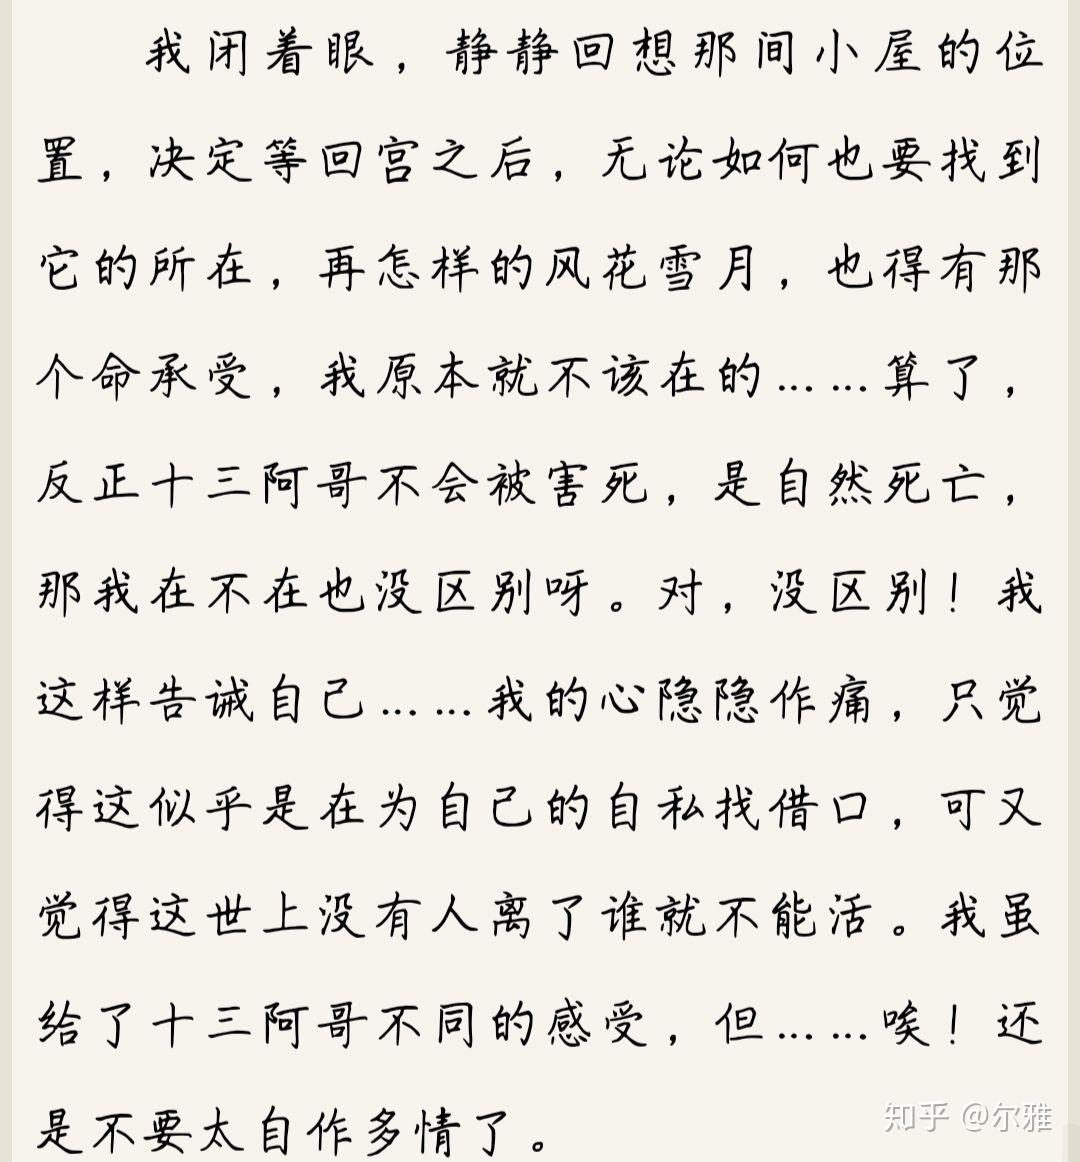 我闭着眼，静静回想那间小屋的位
置，决定等回宫之后，无论如何也要找到
它的所在，再怎样的风花雪月，也得有那
个命承受，我原本就不该在的……算了，
反正十三阿哥不会被害死，是自然死亡，
那我在不在也没区别呀。对，没区别！我
这样告诫自己……我的心隐隐作痛，只觉
得这似乎是在为自己的自私找借口，可又
觉得这世上没有人离了谁就不能活。我虽
给了十三阿哥不同的感受，但……唉！还
是不要太自作多情了。
知乎 @尔雅